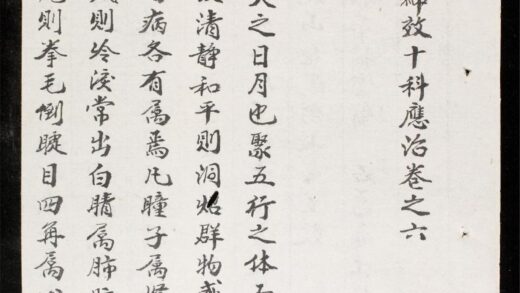 神效十科應治卷之六
天之日月也聚五行之体
清静和平則洞炤群物或
病各有属焉凡瞳子属腎
則冷淚常出白睛属肺
則拳毛倒睫目四角属